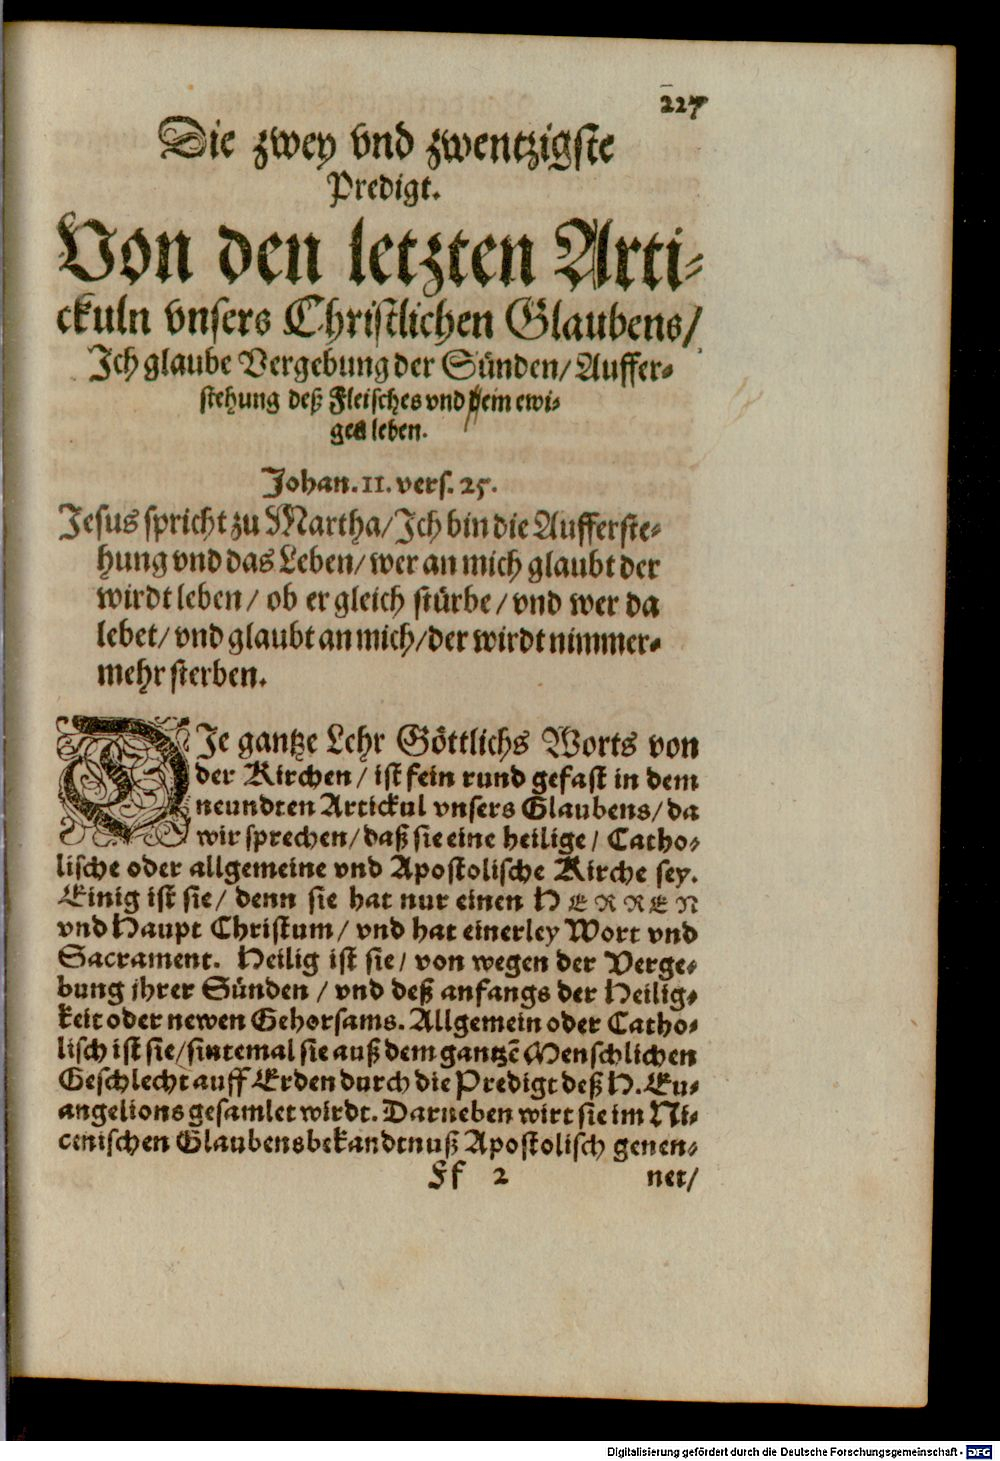 227
Die zwey vnd zwentzigste
Predigt.
Von den letzten Arti-
ckuln vnsers Christlichen Glaubens/
Ich glaube Vergebung der Sünden/ Auffer-
stehung deß Fleisches vnd ein ewi-
ges leben.
Johan. 11. vers. 25.
Jesus spricht zu Martha/ Ich bin die Aufferste-
hung vnd das Leben/ wer an mich glaubt der
wirdt leben/ ob er gleich stürbe/ vnd wer da
lebet/ vnd glaubt an mich/ der wirdt nimmer-
mehr sterben.
DIe gantze Lehr Göttlichs Worts von
der Kirchen/ ist fein rund gefast in dem
neundten Artickul vnsers Glaubens/ da
wir sprechen/ daß sie eine heilige/ Catho-
lische oder allgemeine vnd Apostolische Kirche sey.
Einig ist sie/ denn sie hat nur einen HERREN
vnd Haupt Christum/ vnd hat einerley Wort vnd
Sacrament. Heilig ist sie/ von wegen der Verge-
bung jhrer Sünden/ vnd deß anfangs der Heilig-
keit oder newen Gehorsams. Allgemein oder Catho-
lisch ist sie/ sintemal sie auß dem gantzē Menschlichen
Geschlecht auff Erden durch die Predigt deß H. Eu-
angelions gesamlet wirdt. Darneben wirt sie im Ni-
cenischen Glaubensbekandtnuß Apostolisch genen-
Ff 2 net/
Digitalisierung gefördert durch die Deutsche Forschungsgemeinschaft - DFG